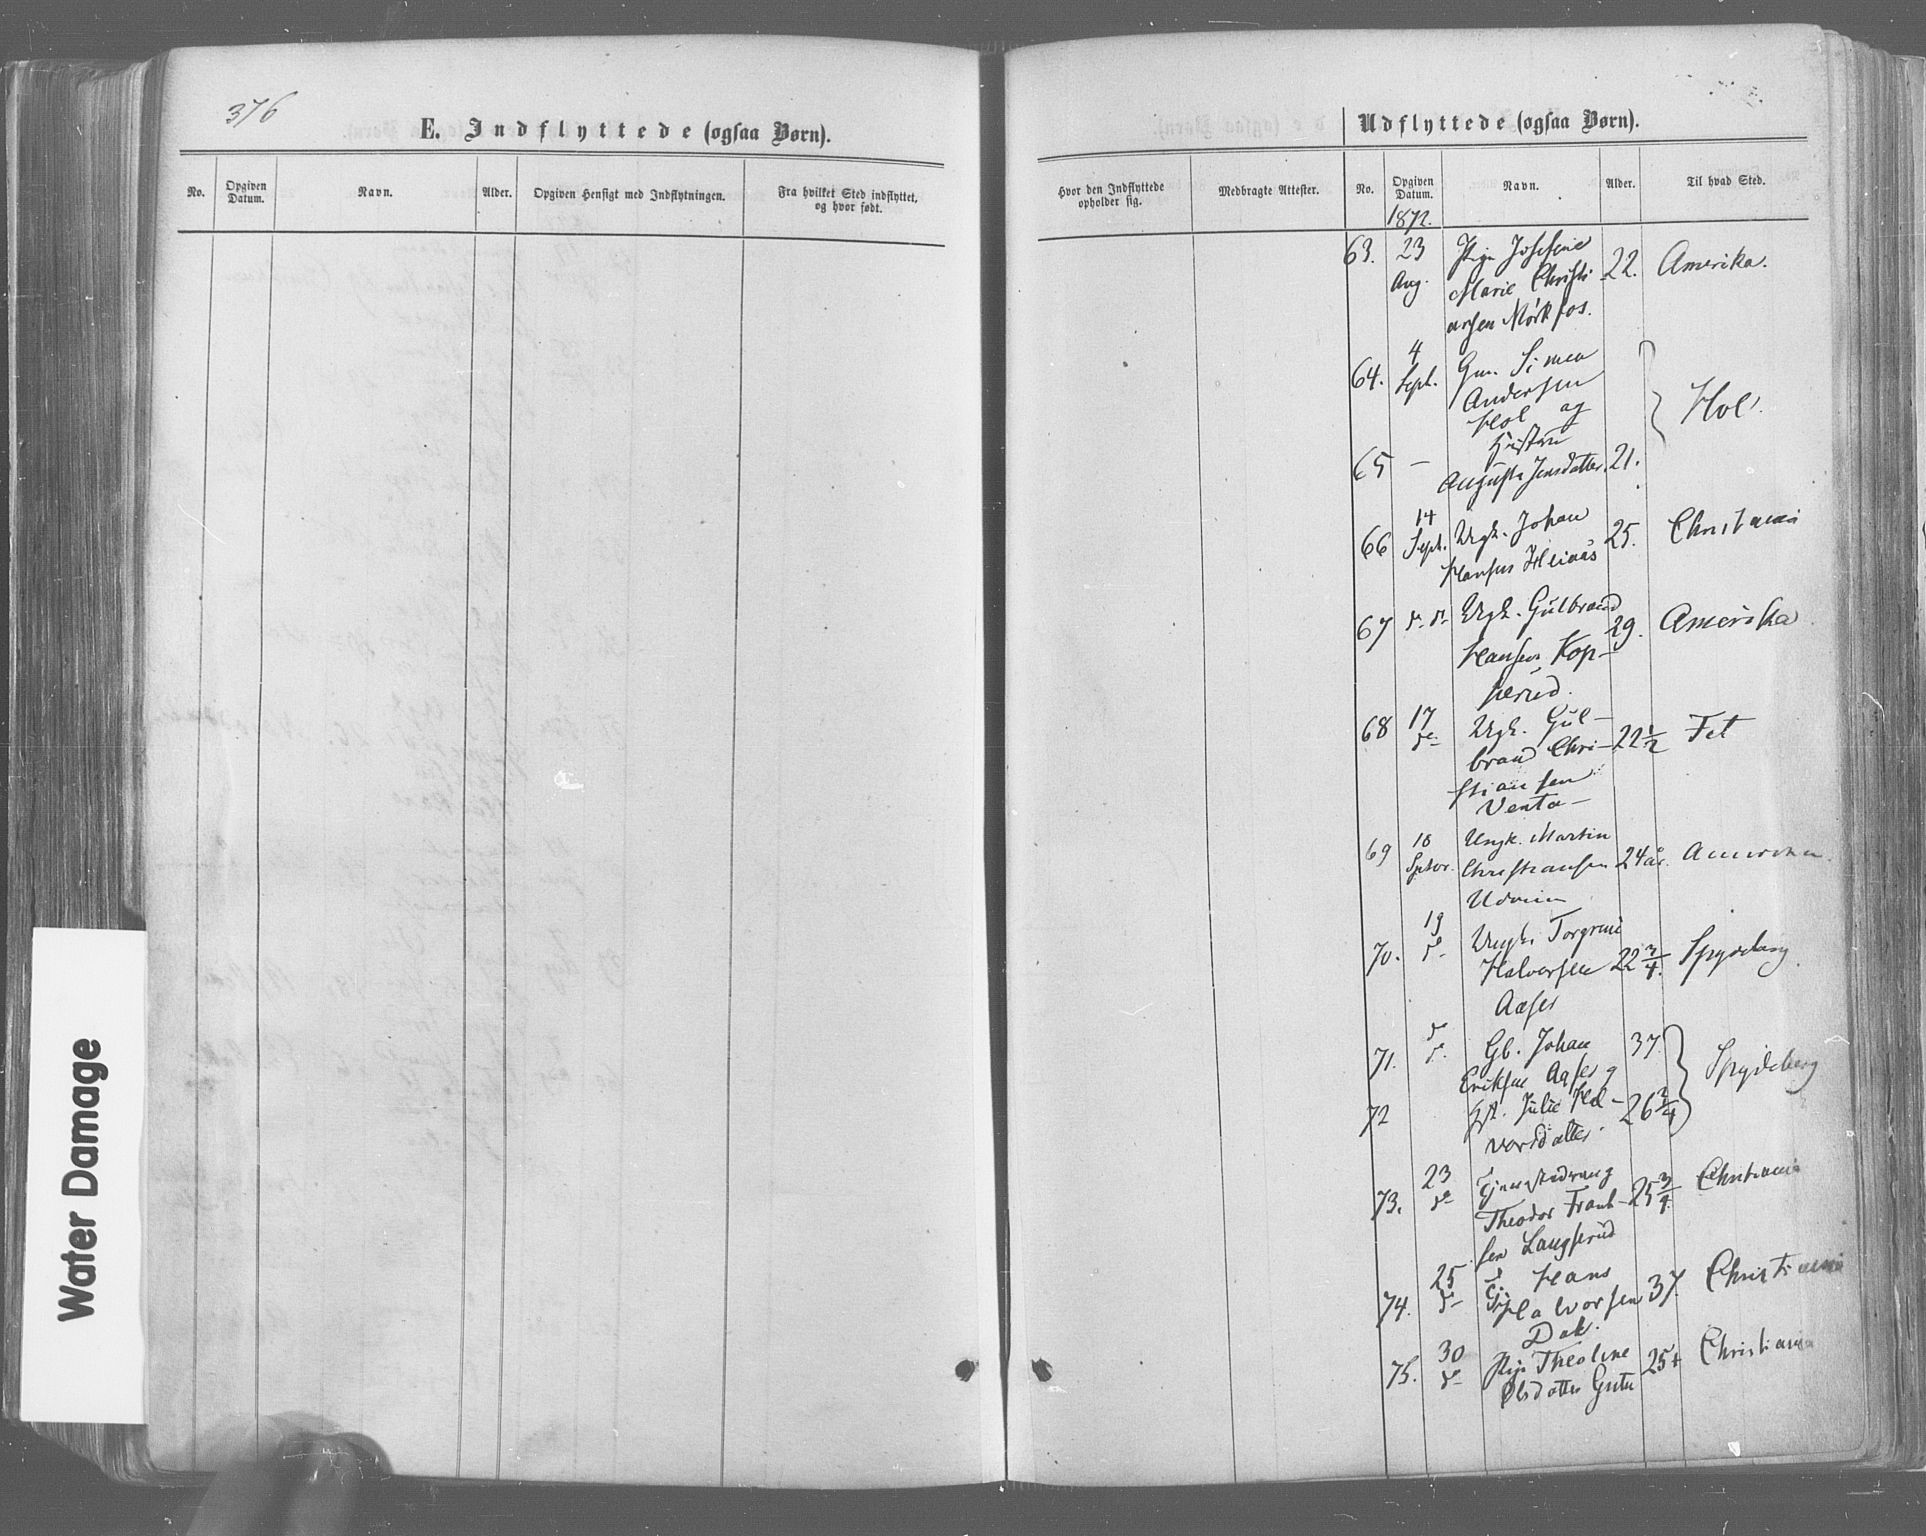 376
E. Indflyttede (ogsaa Børn).
No.
Opgiven Datum.
Navn.
Alder.
Opgiven Hensigt med Indflytningen.
Fra hvilket Sted indflyttet, og hvor født.
Udflyttede (ogsaa Børn).
Hvor den Indflyttede opholder sig.
Medbragte Attester.
No.
Opgiven Datum.
Navn.
Alder.
Til hvad Sted.
1872.
63. 23 Aug. Pige Josefine 22. Amerika.
Marie Christi
ansen Mörkfos.
64. 4 Sept. Gm. Simen
Andersen
Hol og
Hustru
Hol.
65 – Augusta Jensdatter 21.
66 14 Sept. Ungk. Johan 25. Christiania
Hansen
67 d. d. Ungk. Gulbrand 29. Amerika
Hansen Kop-
serud.
68 17 d. Ungk. Gul- 22 1/2 Fet
brand Chri-
stiansen
Venta-
69 18 Sptbr. Ungk. Martin
Christiansen 24 år. Amerika
70. 19 d. Ungk. Torgrim
Halvorsen 22 3/4. Spydeberg
Aaser
71. d. d. Gb. Johan 37.
Eriksen Aaser
Spydeberg
72 Hst. Julie Hal- 26 3/4
vorsdatter
73. 23 d.
Theodor Frant- 25 3/4. Christiania
sen Langserud
74. 25 d. Hans
Halvorsen 37. Christiania
Dal.
75. 30 d. Pige Theoline 25 Christiania
Olsdatter
Water Damage